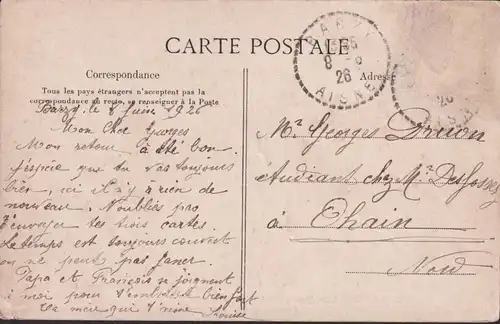 CARTE POSTALE
Correspondance
Tous les pays étrangers n'acceptent pas la
correspondance au recto, se renseigner à la Poste
Adresse
BARZY
8 - 6
26
AISNE
26
Barzy le 8 Juin 1926
Mon Cher Georges
Mon retour a été bon
J'éspère que tu vas toujours
bien, ici il n'y a rien de
nouveau. N'oublies pas
d'envoyer tes trois cartes.
Le temps est toujours couvert
on ne peut pas faner.
Papa et François se joignent
à moi pour t'embrasser bien fort
Ta mère qui t'aime
Louise
Mr Georges Druon
étudiant chez Mr
à Ohain
Nord